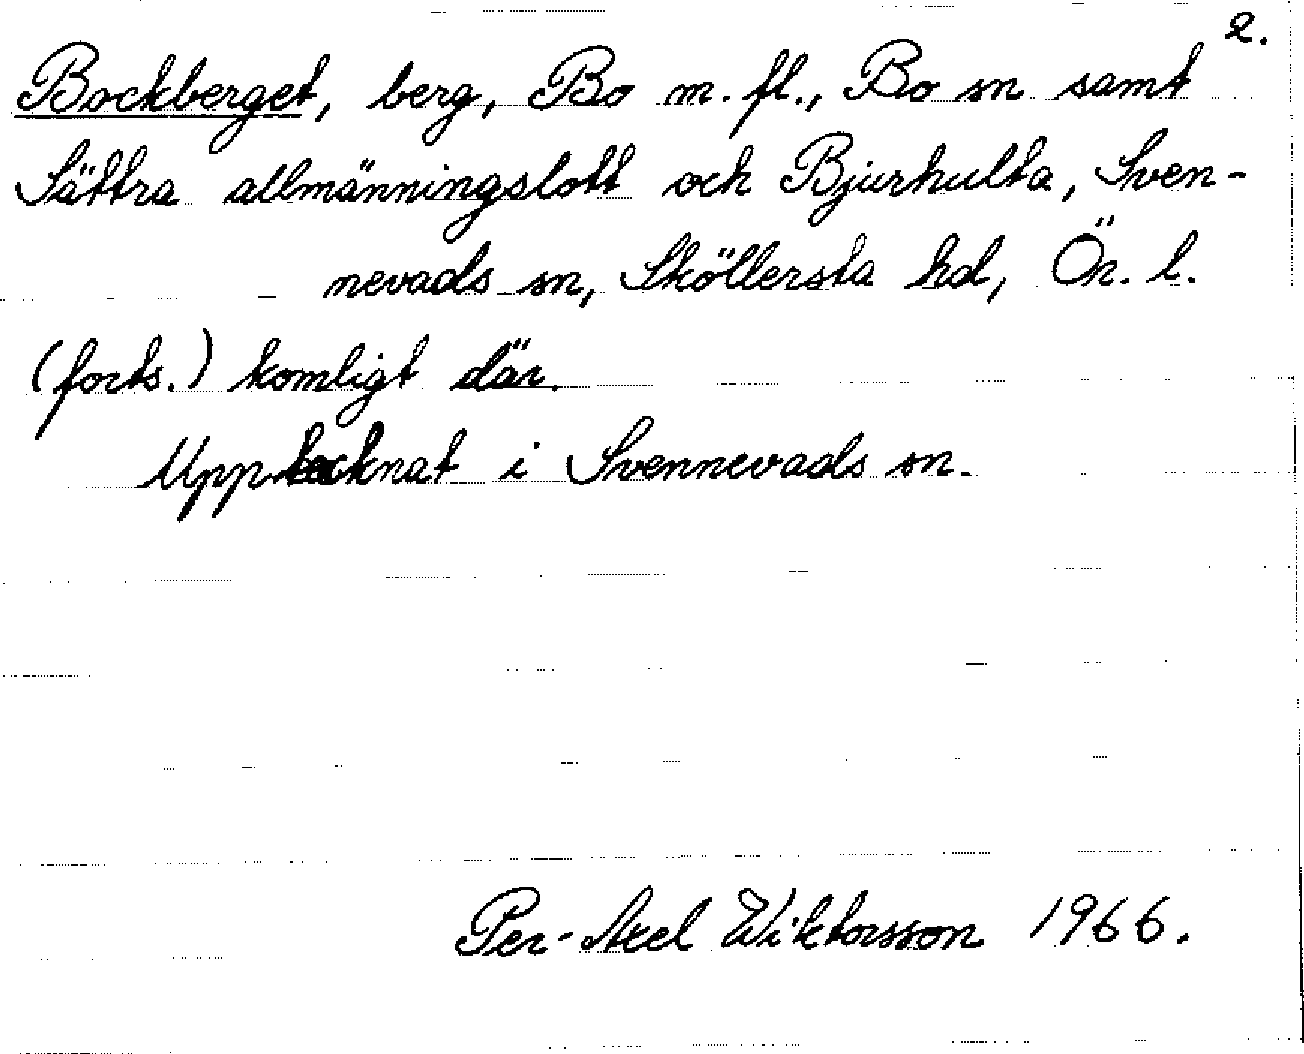 2.
Bockberget, berg, Bo m. fl., Bo sn samt
Sättra allmänningslott och Bjurhulta, Sven-
nevads sn, Sköllersta hd, Ör. l.
(forts.) komligt där.
Upptecknat i Svennevads sn.
Per-Axel Wiktorsson 1966.